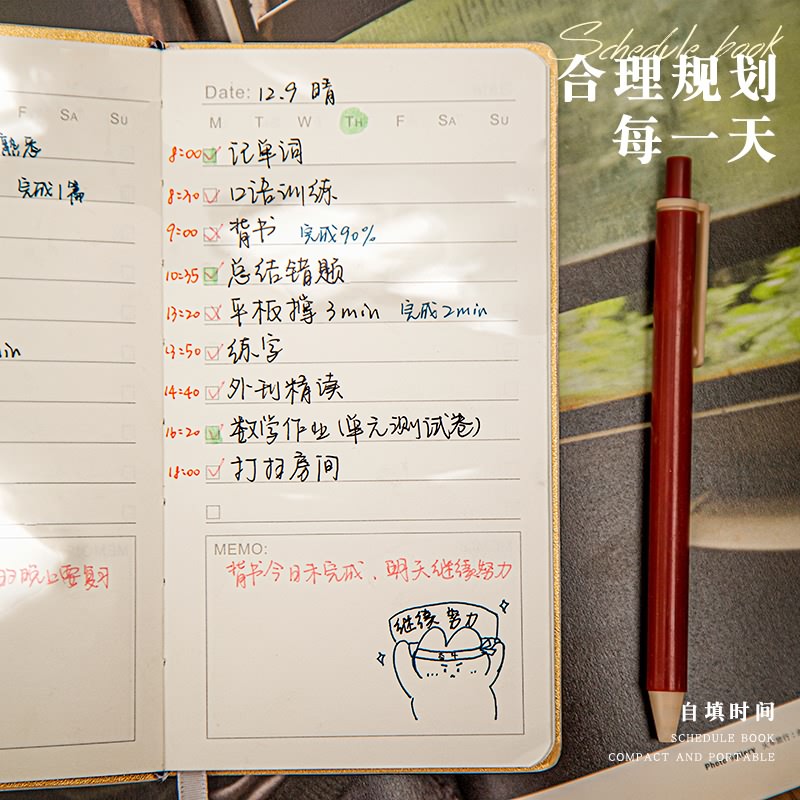 Schedule book
合理规划
每一天
F SA SU
完成1篇
min
晚上要复习
Date: 12.9 晴
M T W TH F SA SU
8:00 记单词
8:30 口语训练
9:00 背书 完成90%
10:35 总结错题
13:20 平板撑3min 完成2min
13:50 练字
14:40 外刊精读
16:20 数学作业(单元测试卷)
18:00 打扫房间
MEMO:
背书今日未完成、明天继续努力
继续努力
自填时间
SCHEDULE BOOK
COMPACT AND PORTABLE